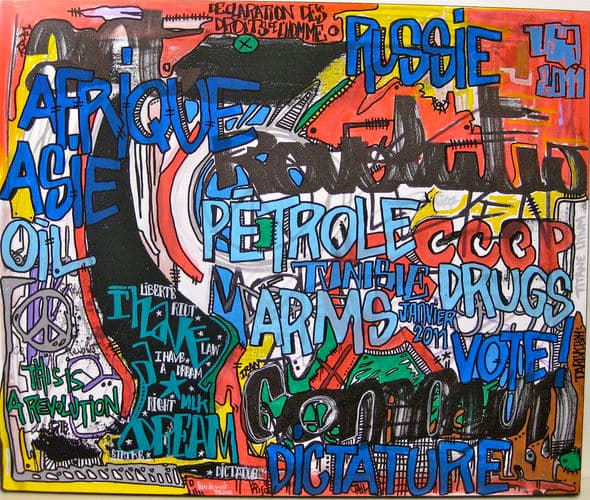 DECLARATION DES
DROITS DE L'HOMME
RUSSIE
USA
2011
AFRIQUE
ASIE
Revolution
PÉTROLE
CCCP
OIL
TUNISIE
DRUGS
ARMS
JANVIER
2011
VOTE!
LIBERTÉ
RIOT
LAW
I HAVE
A DREAM
THIS IS
A REVOLUTION
RIGHT
MLK
DREAM
DICTATURE
DICTATURE